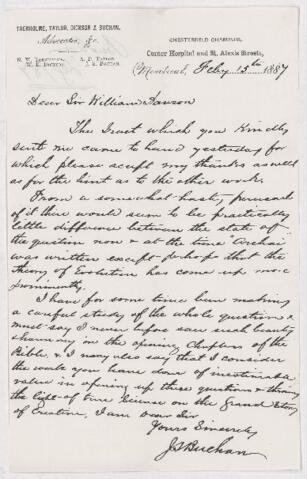 TRENHOLME, TAYLOR, DICKSON & BUCHAN.
Advocates, &c.
N. W. TRENHOLME, A. D. TAYLOR
W. E. DICKSON J. S. BUCHAN.
CHESTERFIELD CHAMBERS,
Corner Hospital and St. Alexis Streets,
Montreal, Feby 15th 1887
Dear Sir William Dawson
The Tract which you kindly
sent me came to hand yesterday for
which please accept my thanks as well
as for the hint as to the other work.
From a somewhat hasty perusal
of it there would seem to be practically
little difference between the state of
the question now & at the time "Archaia"
was written except perhaps that the
theory of Evolution has come up more
prominently,
I have for some time been making
a careful study of the whole questions &
must say I never before saw such beauty
& harmony in the opening chapters of the
Bible, & I may also say that I consider
the work you have done of inestimable
value in opening up these questions & throwing
the light of true science on the grand story
of Creation, I am Dear Sir
Yours Sincerely
J S Buchan